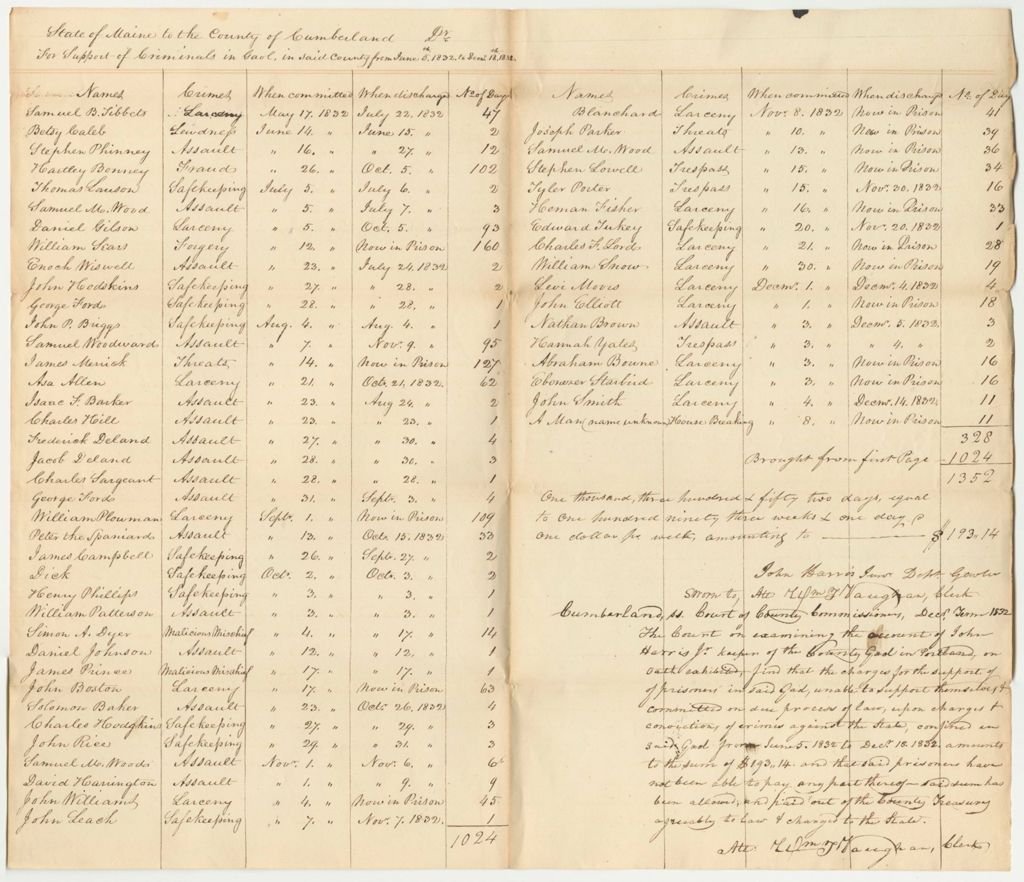 State of Maine to the County of Cumberland Dr.
For Support of Criminals in Gaol, in said County from June 5th, 1832, to Decmr 18th, 1832.
Names Crimes When committed When discharged No of Days
Samuel B. Tibbets Larceny May 17. 1832 July 22. 1832 47
Betsy Caleb Lewdness June 14. " June 15. " 2
Stephen Phinney Assault " 16. " " 27. " 12
Hartley Bonney Frauds " 26. " Oct. 5. " 102
Thomas Lawson Safekeeping July 5. " July 6. " 2
Samuel M. Wood Assault " 5. " July 7. " 3
Daniel Gilson Larceny " 5. " Oct. 5. " 93
William Sears Forgery " 12. " Now in Prison 160
Enoch Wiswell Assault " 23. " July 24. 1832 2
John Hodskins Safekeeping " 27. " " 28. " 2
George Fords Safekeeping " 28. " " 28. " 1
John P. Briggs Safekeeping Aug. 4. " Aug. 4. " 1
Samuel Woodward Assault " 7. " Nov. 9. " 95
James Merick Threats " 14. " Now in Prison 127
Asa Allen Larceny " 21. " Oct. 21, 1832. 62
Isaac F. Barker Assault " 23. " Aug 24. " 2
Charles Hill Assault " 23. " " 23. " 1
Frederick Deland Assault " 27. " " 30. " 4
Jacob Deland Assault " 28. " " 30. " 3
Charles Sargeant Assault " 28. " " 28. " 1
George Fords Assault " 31. " Sept. 3. " 4
William Plowman Larceny Sept. 1. " Now in Prison 109
Peter the Spaniard Assault " 13. " Oct. 15. 1832 33
James Campbell Safekeeping " 26. " Sept. 27. " 2
Dick Safekeeping Oct. 2. " Oct. 3. " 2
Henry Phillips Safekeeping " 3. " " 3. " 1
William Patterson Assault " 3. " " 3. " 1
Simon A. Dyer Malicious Mischief " 4. " " 17. " 14
Daniel Johnson Assault " 12. " " 12. " 1
James Prince Malicious Mischief " 17. " " 17. " 1
John Boston Larceny " 17. " Now in Prison 63
Solomon Baker Assault " 23. " Oct. 26. 1832 4
Charles Hodgkins Safekeeping " 27. " " 29. " 3
John Rice Safekeeping " 29. " " 31. " 3
Samuel M. Woods Assault Nov. 1. " Nov. 6. " 6
David Harrington Assault " 1. " " 9. " 9
John Williams Larceny " 4. " Now in Prison 45
John Leach Safekeeping " 7. " Nov. 7. 1832. 1
1024
Names Crimes When committed When discharged No of Days
Blanchard Larceny Nov. 8. 1832 Now in Prison 41
Joseph Parker Threats " 10. " Now in Prison 39
Samuel M. Wood Assault " 13. " Now in Prison 36
Stephen Lowell Trespass " 15. " Now in Prison 34
Tyler Porter Trespass " 15. " Nov. 30. 1832 16
Heman Fisher Larceny " 16. " Now in Prison 33
Edward Tukey Safekeeping " 20. " Nov. 20. 1832 1
Charles F. Lord Larceny " 21. " Now in Prison 28
William Snow Larceny " 30. " Now in Prison 19
Levi Moers Larceny Decmr. 1. " Decmr. 4. 1832 4
John Elliott Larceny " 1. " Now in Prison 18
Nathan Brown Assault " 3. " Decmr. 5. 1832. 3
Hannah Yates Trespass " 3. " " 4. " 2
Abraham Bowne Larceny " 3. " Now in Prison 16
Ebenezer Starbird Larceny " 3. " Now in Prison 16
John Smith Larceny " 4. " Decmr. 14. 1832. 11
A Man (name unknown) House Breaking " 8. " Now in Prison 11
328
Brought from first Page 1024
1352
One thousand, three hundred & fifty two days, equal
to one hundred ninety three weeks & one day @
one dollar per week, amounting to $193.14
John Harris Junr. Depty. Gaoler
Sworn to, Att: Wm T Vaughan, Clerk
Cumberland, ss. Court of County Commissioners, Decr. Term 1832
The Court on examining the account of John
Harris Jr. keeper of the County Gaol in Portland, on
oath exhibited, find that the charges for the support of
of prisoners in said Gaol, unable to support themselves &
committed on due process of law, upon charges &
convictions of crimes against the State, confined in
said Gaol from June 5. 1832 to Decr. 18. 1832. amounts
to the sum of $193.14. and that said prisoners have
not been able to pay any part thereof – said sum has
been allowed, and paid out of the County Treasury
agreeably to law & charged to the State.
Att: Wm T Vaughan, Clerk